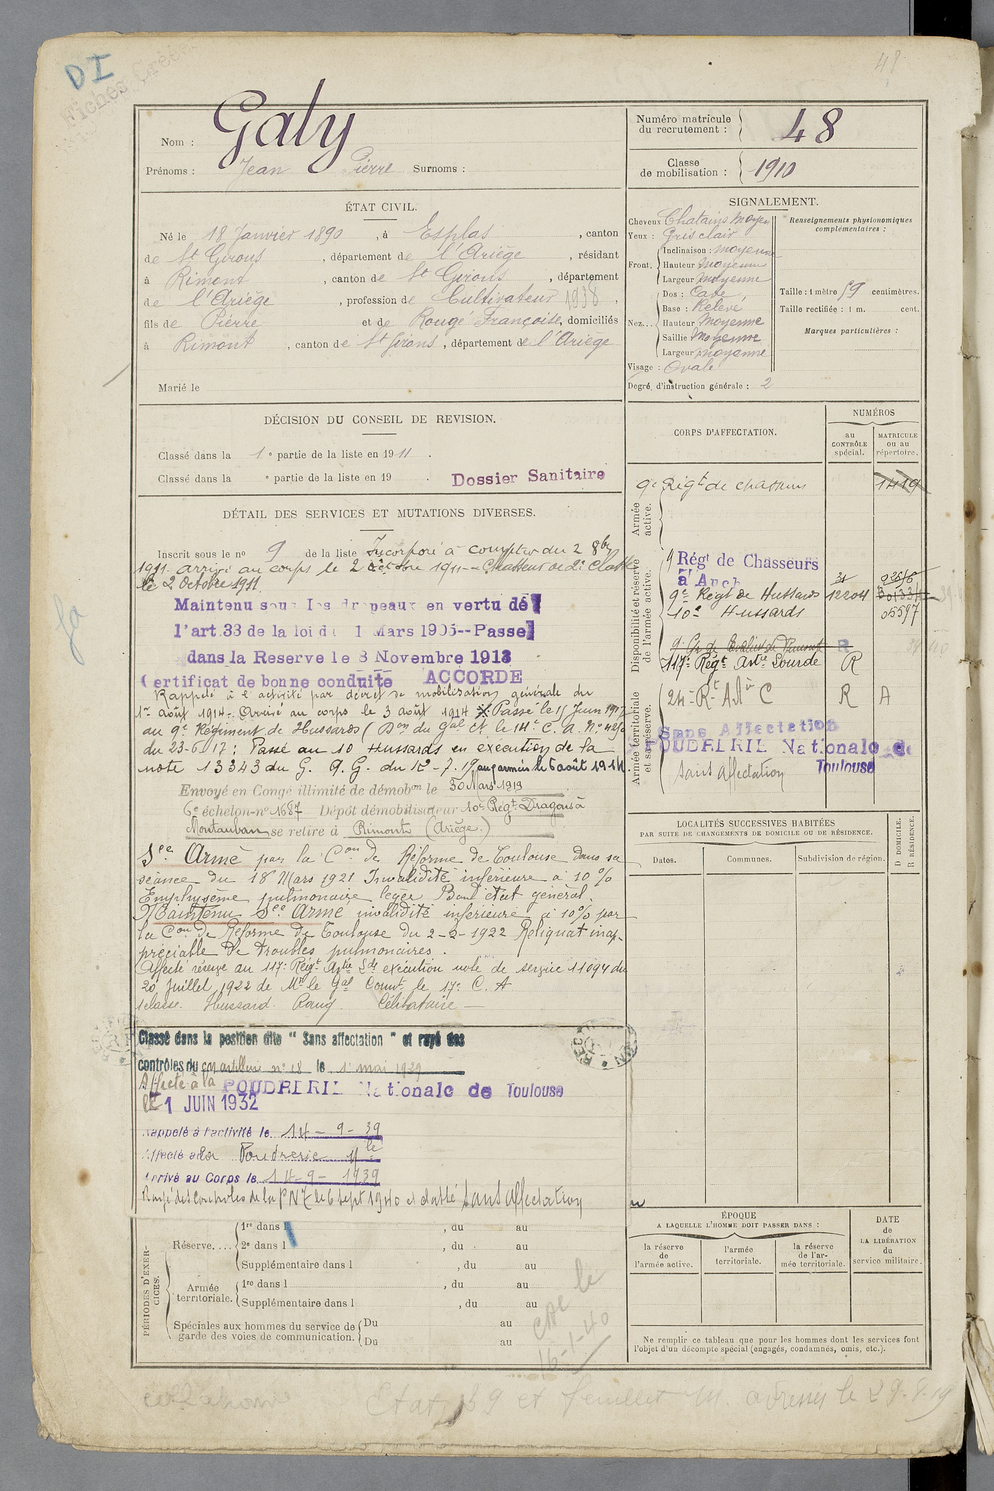 DI
Fiches
48
Nom : Galy
Prénoms : Jean Pierre Surnoms :
Numéro matricule du recrutement : 48
Classe de mobilisation : 1910
ÉTAT CIVIL.
Né le 18 Janvier 1890, à Esplas, canton
de St Girons, département de l'Ariège, résidant
à Rimont, canton de St Girons, département
de l'Ariège, profession de Cultivateur 1938,
fils de Pierre et de Rougé Françoise, domiciliés
à Rimont, canton de St Girons, département de l'Ariège
Marié le
SIGNALEMENT.
Cheveux Chatains moyen
Yeux : Gris clair
Front. Inclinaison : moyenne
Hauteur moyenne
Largeur moyenne
Nez... Dos : Cave
Base : Relevé
Hauteur Moyenne
Saillie Moyenne
Largeur moyenne
Visage : Ovale
Renseignements physionomiques complémentaires :
Taille : 1 mètre 59 centimètres.
Taille rectifiée : 1 m. cent.
Marques particulières :
Degré d'instruction générale : 2
DÉCISION DU CONSEIL DE REVISION.
Classé dans la 1e partie de la liste en 1911.
Classé dans la e partie de la liste en 19 .
Dossier Sanitaire
CORPS D'AFFECTATION.
NUMÉROS
AU CONTRÔLE spécial.
MATRICULE ou au répertoire.
Armée active.
9e Régt de chasseurs 1419
Disponibilité et réserve de l'armée active.
9 Régt de Chasseurs
à
9e Régt de Hussards 12204
10e Hussards 05597
R
117e Régt Artie Lourde R
Armée territoriale et sa réserve.
24 R A
Sans Affectation
POUDRERIE Nationale de Toulouse
Sans affectation
DÉTAIL DES SERVICES ET MUTATIONS DIVERSES.
Inscrit sous le no 9 de la liste Incorporé à compter du 2 8bre
1911. arrivé au corps le 2 octobre 1911 - Chasseur de 2e Classe
le 2 octobre 1911
Maintenu sous les drapeaux en vertu de
l'art. 33 de la loi du 21 Mars 1905--Passé
dans la Reserve le 8 Novembre 1913
Certificat de bonne conduite ACCORDE
Rappelé à l'activité par décret de mobilisation générale du
1er août 1914. Arrivé au corps le 3 août 1914 Passé le 11 Juin 1917
au 9e Régiment de Hussards (Don du Gal Ct le 14e C. A. No
du 23-6-17 ; Passé au 10 Hussards en exécution de la
note 13343 du G. Q. G. du aux armées le 6 août 1914.
Envoyé en Congé illimité de démobon le 30 Mars 1919
6e échelon-no 1687 Dépôt démobilisateur 10e Régt Dragons à
Montauban se retire à Rimont (Ariège.)
See Armé par la Con de Réforme de Toulouse dans sa
séance du 18 Mars 1921 Invalidité inférieure à 10 %
Emphysème pulmonaire léger Bon état général.
Maintenu See Armé invalidité inférieure à 10% par
la Con de Réforme de Toulouse du 2-2-1922 Reliquat inap-
préciable de troubles pulmonaires.
Affecté réserve au 117e Régt Artie Lde exécution note de service 11094 du
20 Juillet 1922 de Mr le Gal Comt le 17e C. A
classe. Hussard Rang Célibataire -
Classé dans la position dite " Sans affectation " et rayé des
contrôles du artillerie no 18 le 1er mai 1929
Affecté à la POUDRERIE Nationale de Toulouse
le 1 JUIN 1932
Rappelé à l'activité le 14 - 9 - 39
Affecté à la Poudrerie Nle
Arrivé au Corps le 14-9-1939
Rayé des controles de la P.N.T le 6 sept 1940 et classé sans affectation
LOCALITÉS SUCCESSIVES HABITÉES
PAR SUITE DE CHANGEMENTS DE DOMICILE OU DE RÉSIDENCE.
Dates. Communes. Subdivision de région.
D DOMICILE. R RÉSIDENCE.
PÉRIODES D'EXERCICES.
Réserve... 1re dans l , du au
2e dans l , du au
Supplémentaire dans l , du au
Armée territoriale. 1re dans l , du au
Supplémentaire dans l , du au
Spéciales aux hommes du service de garde des voies de communication. Du au
Du au
le
16-1-40
ÉPOQUE
A LAQUELLE L'HOMME DOIT PASSER DANS :
la réserve de l'armée active.
l'armée territoriale.
la réserve de l'armée territoriale.
DATE de LA LIBÉRATION du service militaire.
Ne remplir ce tableau que pour les hommes dont les services font
l'objet d'un décompte spécial (engagés, condamnés, omis, etc.).
Etat 39 et feuillet M. adressés le 29-8-